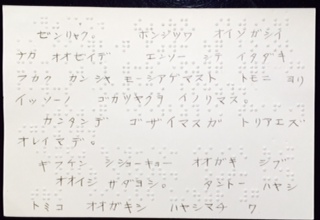 ゼンリャク。 ホンジツワ オイソガシイ
ナカ オオゼイデ エンソー シテ イタダキ
アカク カンシャ モーシアゲマスト トモニ ヨリ
イッソーノ ゴカツヤクヲ イノリマス。
カンタンデ ゴザイマスガ トリアエズ
オレイマデ。
ギフケン シショーキョー オオガキ シブ
オオイシ サダヨシ。 タントー ハヤシ
トミコ オオガキシ ハヤシマチ ワ